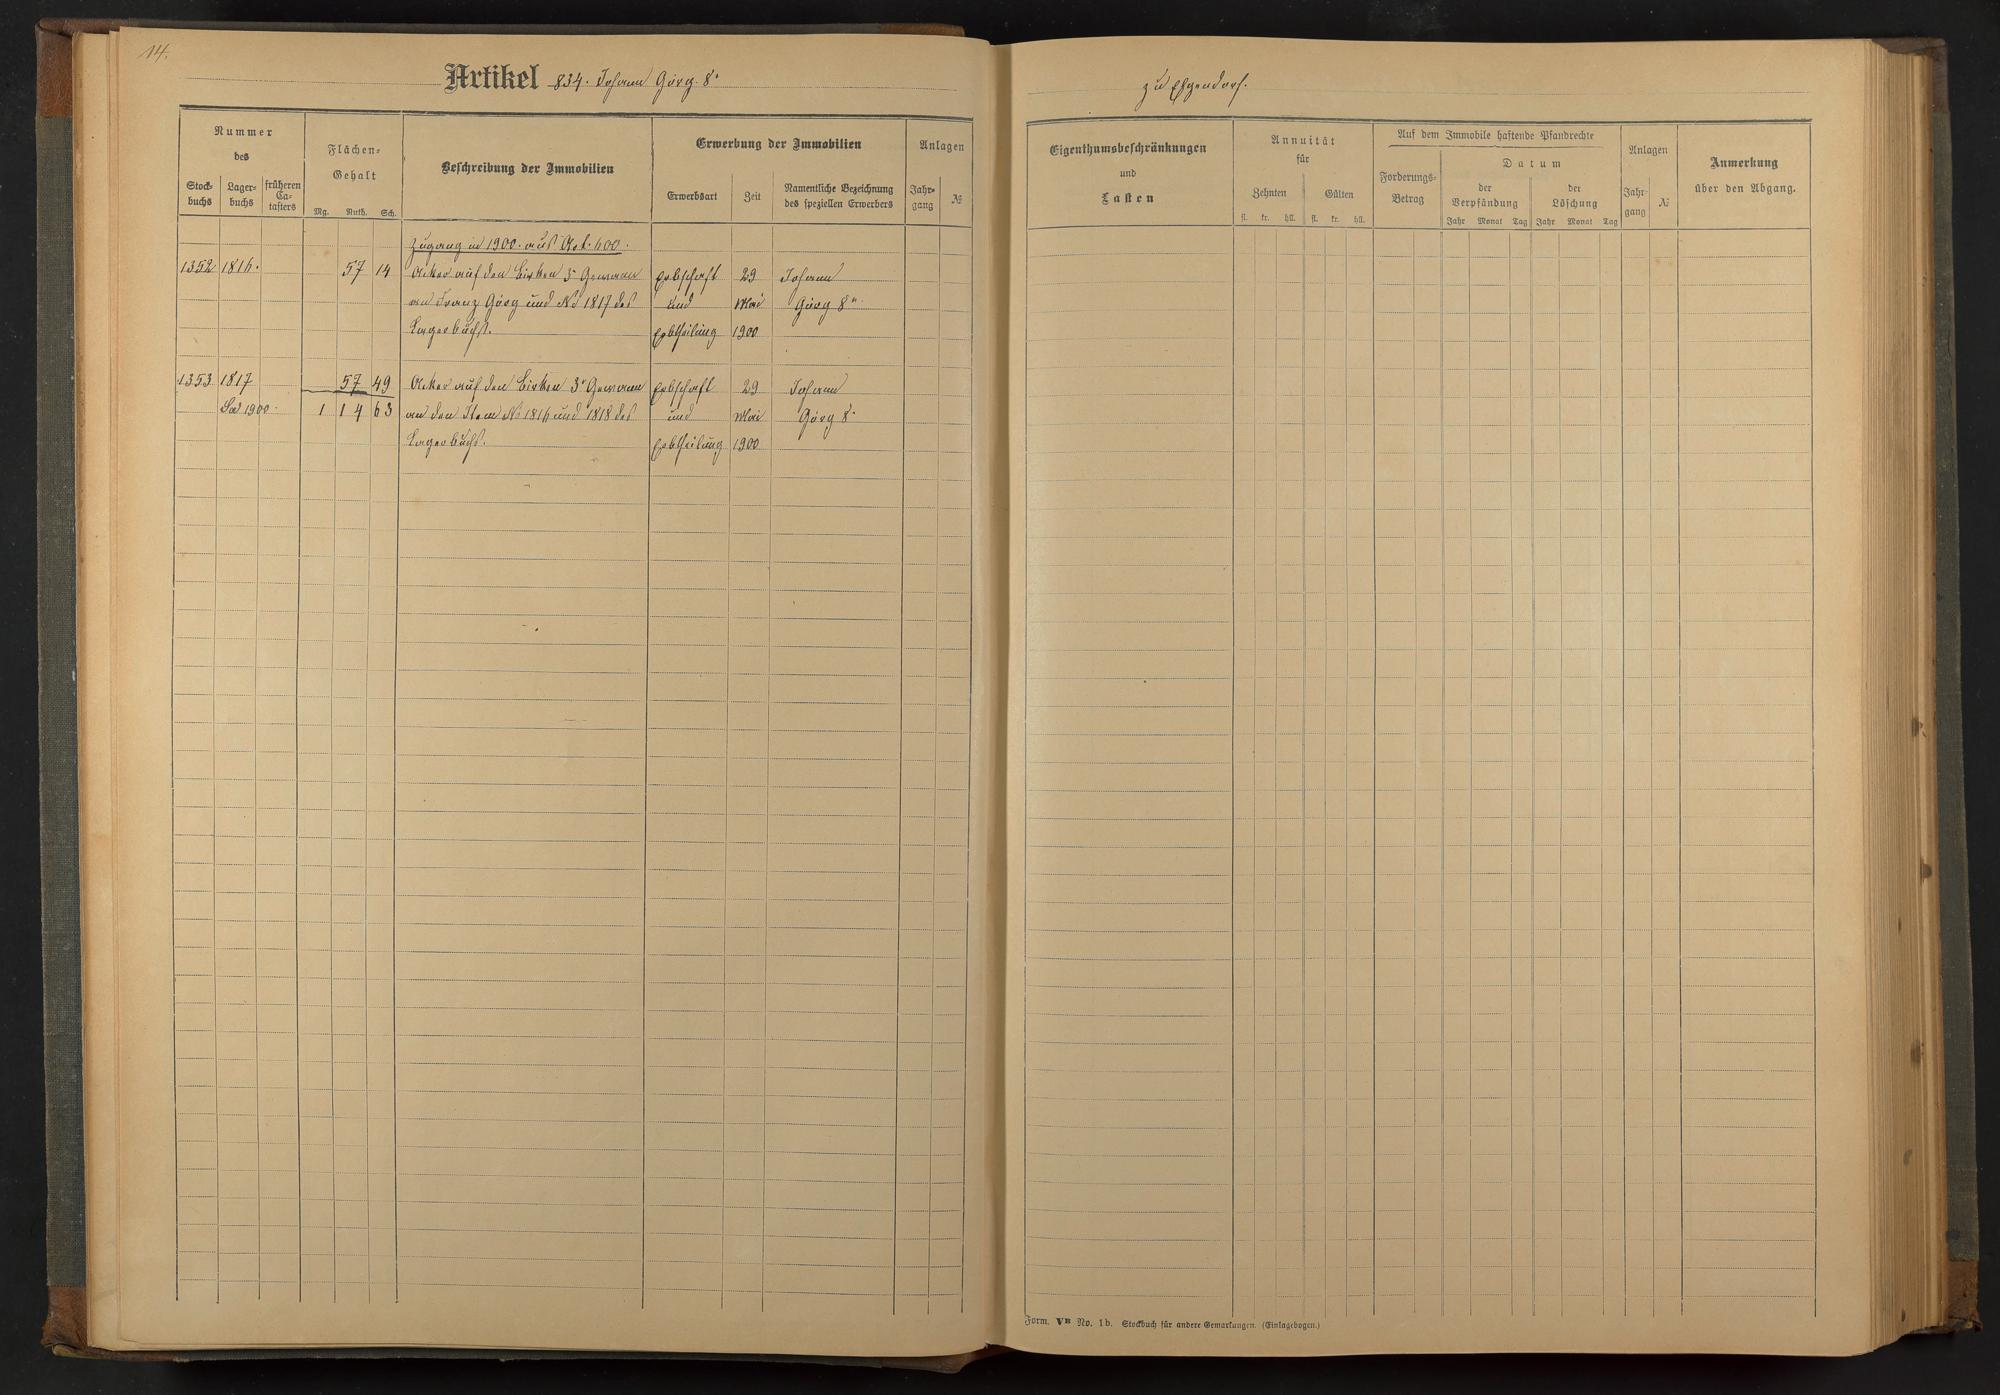 14.
Artikel 834. Johann Görg 8r
zu Elgendorf.
Nummer
des
Stock-
buchs
Lager-
buchs
früheren
Ca-
tasters
Flächen-
Gehalt
Mg. Ruth. Sch.
Beschreibung der Immobilien
Erwerbung der Immobilien
Erwerbsart
Zeit
Namentliche Bezeichnung
des speziellen Erwerbers
Anlagen
Jahr-
gang
№
Zugang in 1900. aus Art. 400.
1352 1816. 57 14 Acker auf den Birken 3r Gewann Erbschaft 29 Johann
an Franz Görg und No 1817 des und Mai Görg 8r
Lagerbuchs. Erbtheilung 1900
1353 1817 57 49 Acker auf den Birken 3r Gewann Erbschaft 29 Johann
Sa 1900. 1 14 63 an den Item No 1816 und 1818 des und Mai Görg 8r
Lagerbuchs. Erbtheilung 1900
Eigenthumsbeschränkungen
und
Lasten
Annuität
für
Zehnten Gülten
fl. kr. hll. fl. kr. hll.
Auf dem Immobile haftende Pfandrechte
Forderungs-
Betrag
Datum
der
Verpfändung
Jahr Monat Tag
der
Löschung
Jahr Monat Tag
Anlagen
Jahr-
gang
№
Anmerkung
über den Abgang.
Form. VB No. 1b. Stockbuch für andere Gemarkungen. (Einlagebogen.)